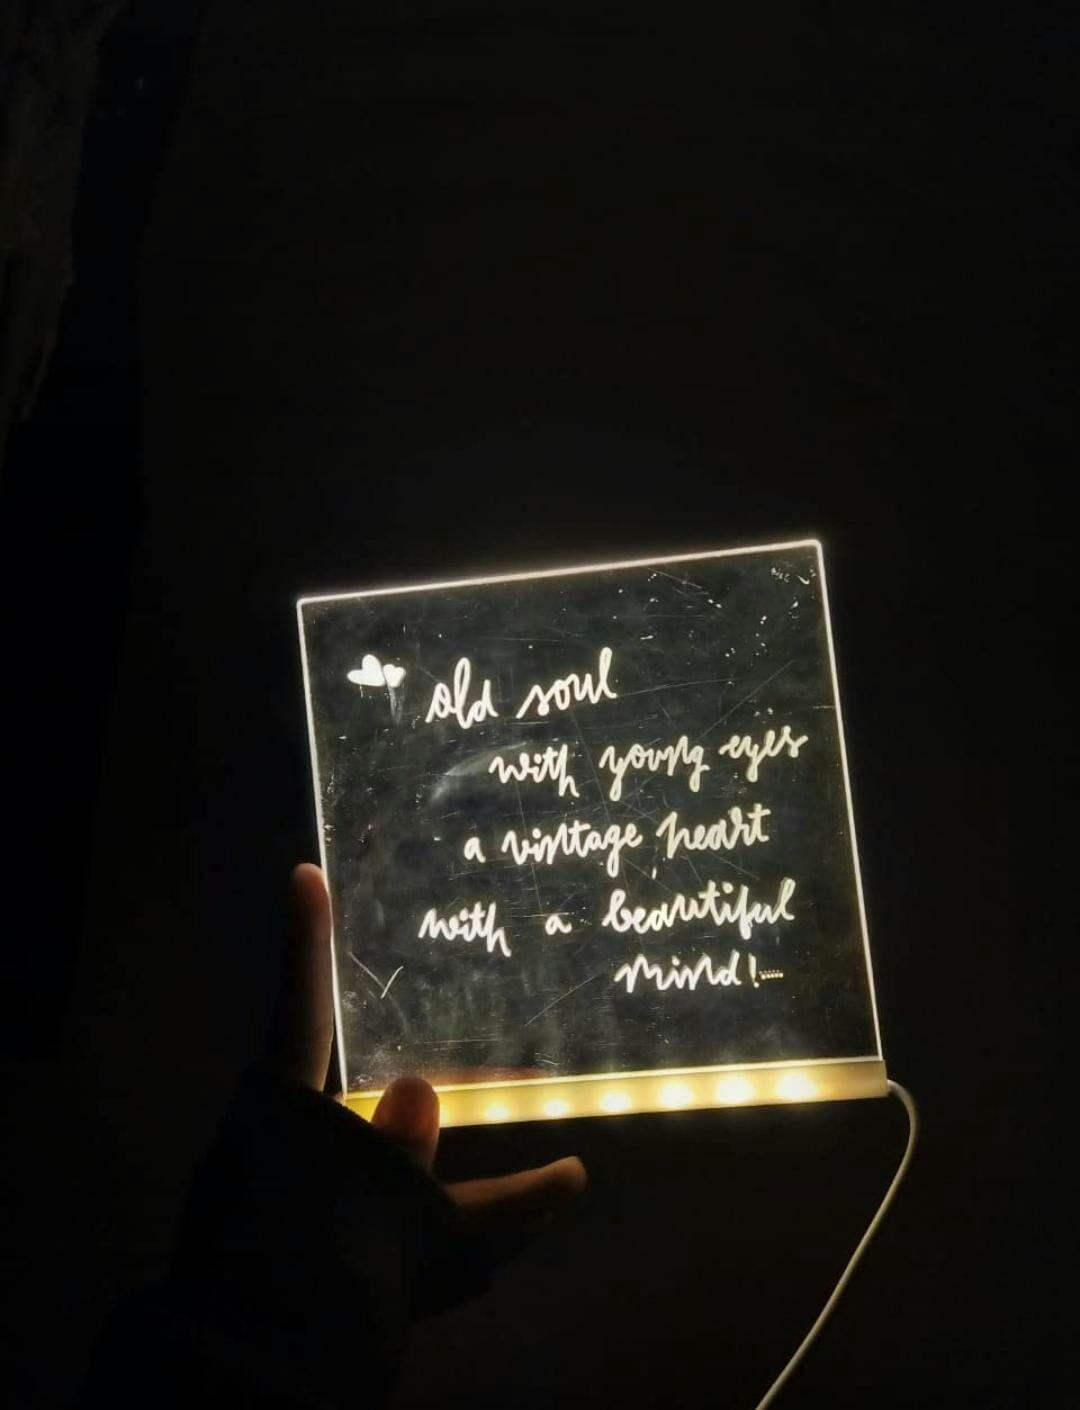 old soul
with young eyes
a vintage heart
with a beautiful
mind!....